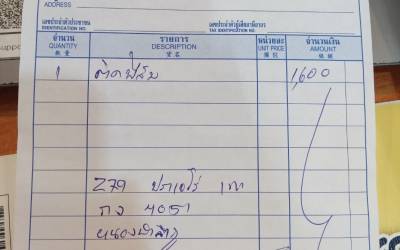 ADDRESS
เลขประจำตัวประชาชน
IDENTIFICATION NO.
เลขประจำตัวผู้เสียภาษีอากร
TAX IDENTIFICATION NO.
จำนวน
QUANTITY
數量
รายการ
DESCRIPTION
貨名
หน่วยละ
UNIT PRICE
จำนวนเงิน
AMOUNT
1 ติดฟิล์ม 1,600
279
กง 4051